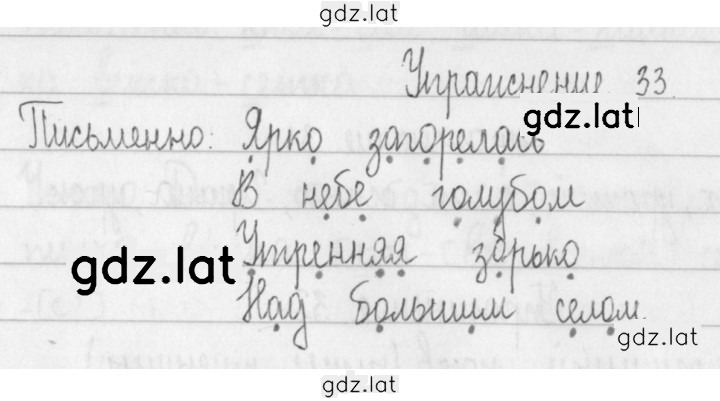 gdz.lat
Упражнение 33.
gdz.lat
Письменно: Ярко загорелась
В небе голубом
Утренняя зорько
gdz.lat
Над большим селом.
gdz.lat
gdz.lat